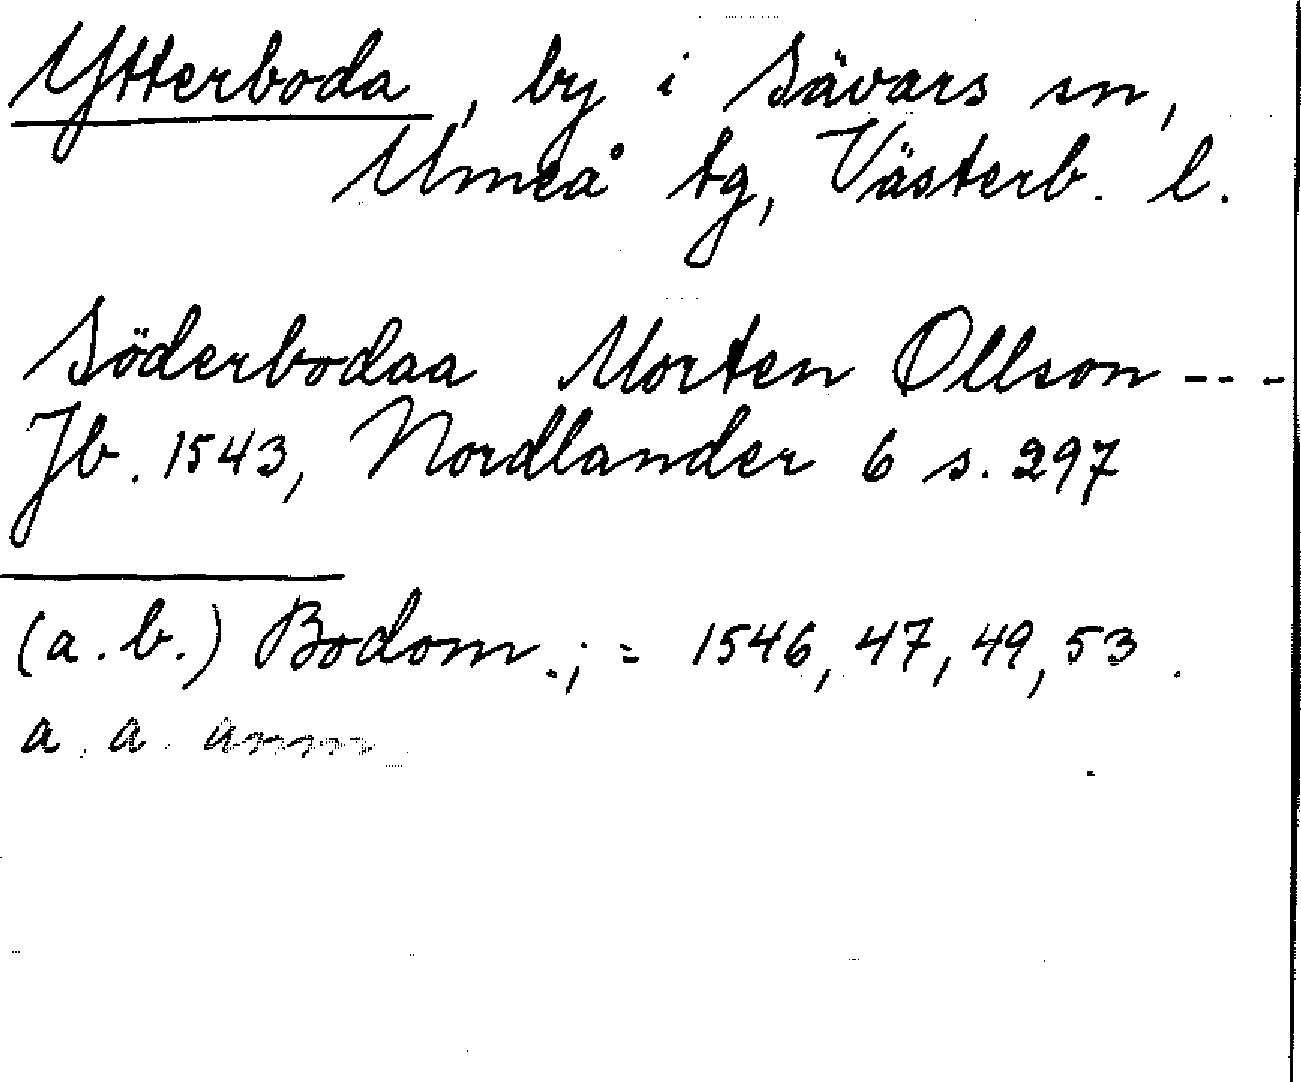 Ytterboda, by i Sävars sn,
Umeå tg, Västerb. l.
Söderbodaa Morten Ollson ---
Jb. 1543, Nordlander 6 s. 297
(a.b.) Bodom.; = 1546, 47, 49, 53.
a. a. anm